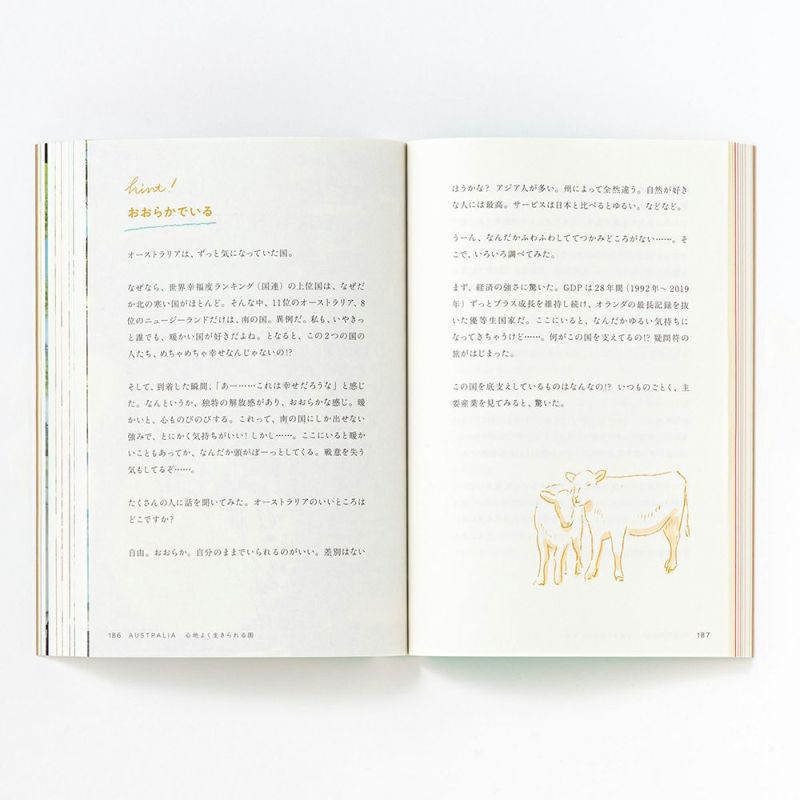 hint!
おおらかでいる
オーストラリアは、ずっと気になっていた国。
なぜなら、世界幸福度ランキング（国連）の上位国は、なぜだ
か北の寒い国がほとんど。そんな中、11位のオーストラリア、8
位のニュージーランドだけは、南の国。異例だ。私も、いやきっ
と誰でも、暖かい国が好きだよね。となると、この2つの国の
人たち、めちゃめちゃ幸せなんじゃないの!?
そして、到着した瞬間、「あー……これは幸せだろうな」と感じ
た。なんというか、独特の解放感があり、おおらかな感じ。暖
かいと、心ものびのびする。これって、南の国にしか出せない
強みで、とにかく気持ちがいい！しかし……。ここにいると暖か
いこともあってか、なんだか頭がぼーっとしてくる。戦意を失う
気もしてるぞ……。
たくさんの人に話を聞いてみた。オーストラリアのいいところは
どこですか？
自由。おおらか。自分のままでいられるのがいい。差別はない
186 AUSTRALIA 心地よく生きられる国
ほうかな？ アジア人が多い。州によって全然違う。自然が好き
な人には最高。サービスは日本と比べるとゆるい。などなど。
うーん、なんだかふわふわしててつかみどころがない……。そ
こで、いろいろ調べてみた。
まず、経済の強さに驚いた。GDPは28年間（1992年〜2019
年）ずっとプラス成長を維持し続け、オランダの最長記録を抜
いた優等生国家だ。ここにいると、なんだかゆるい気持ちに
なってきちゃうけど……。何がこの国を支えてるの!? 疑問符の
旅がはじまった。
この国を底支えしているものはなんなの!? いつものごとく、主
要産業を見てみると、驚いた。
187